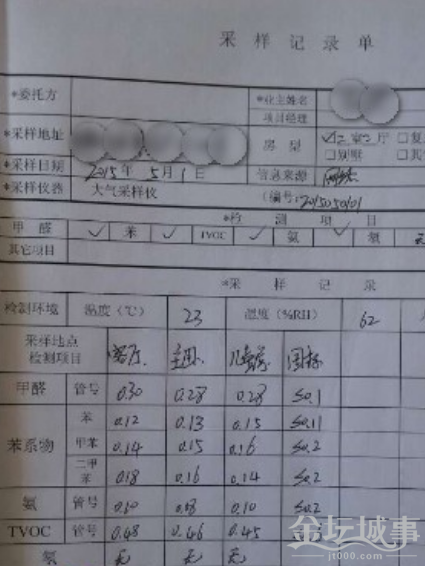 采样记录单
*委托方 *业主姓名
项目经理
*采样地址 房型 ✓二室二厅 □复
□别墅 □其
*采样日期 2015年5月1日 信息来源
*采样仪器 大气采样仪 (编号:20150501
*检测项目
甲醛 ✓ 苯 ✓ TVOC ✓ 氨 ✓ 氡
其它项目
*采样记录
检测环境 温度(℃) 23 湿度(%RH) 62
采样地点
检测项目 客厅 主卧 儿童房 国标
甲醛 管号 0.30 0.28 0.28 ≤0.1
苯系物 苯 0.12 0.13 0.15 ≤0.11
甲苯 0.14 0.15 0.16 ≤0.2
二甲苯 0.18 0.16 0.14 ≤0.2
氨 管号 0.10 0.10 ≤0.2
TVOC 管号 0.48 0.46 0.45
氡 无 无 无
金坛城事
jt000.com